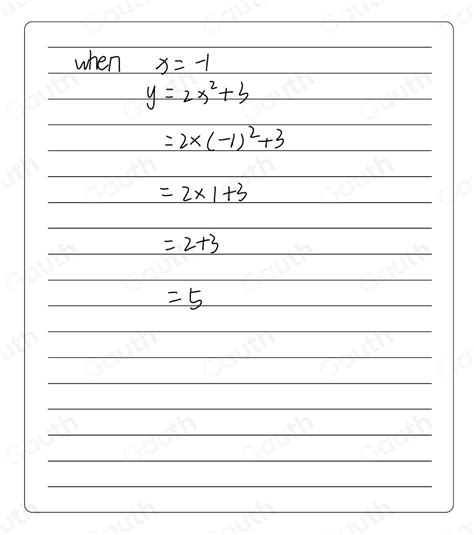 when x = -1
y = 2x²+3
= 2×(-1)²+3
= 2×1+3
= 2+3
= 5